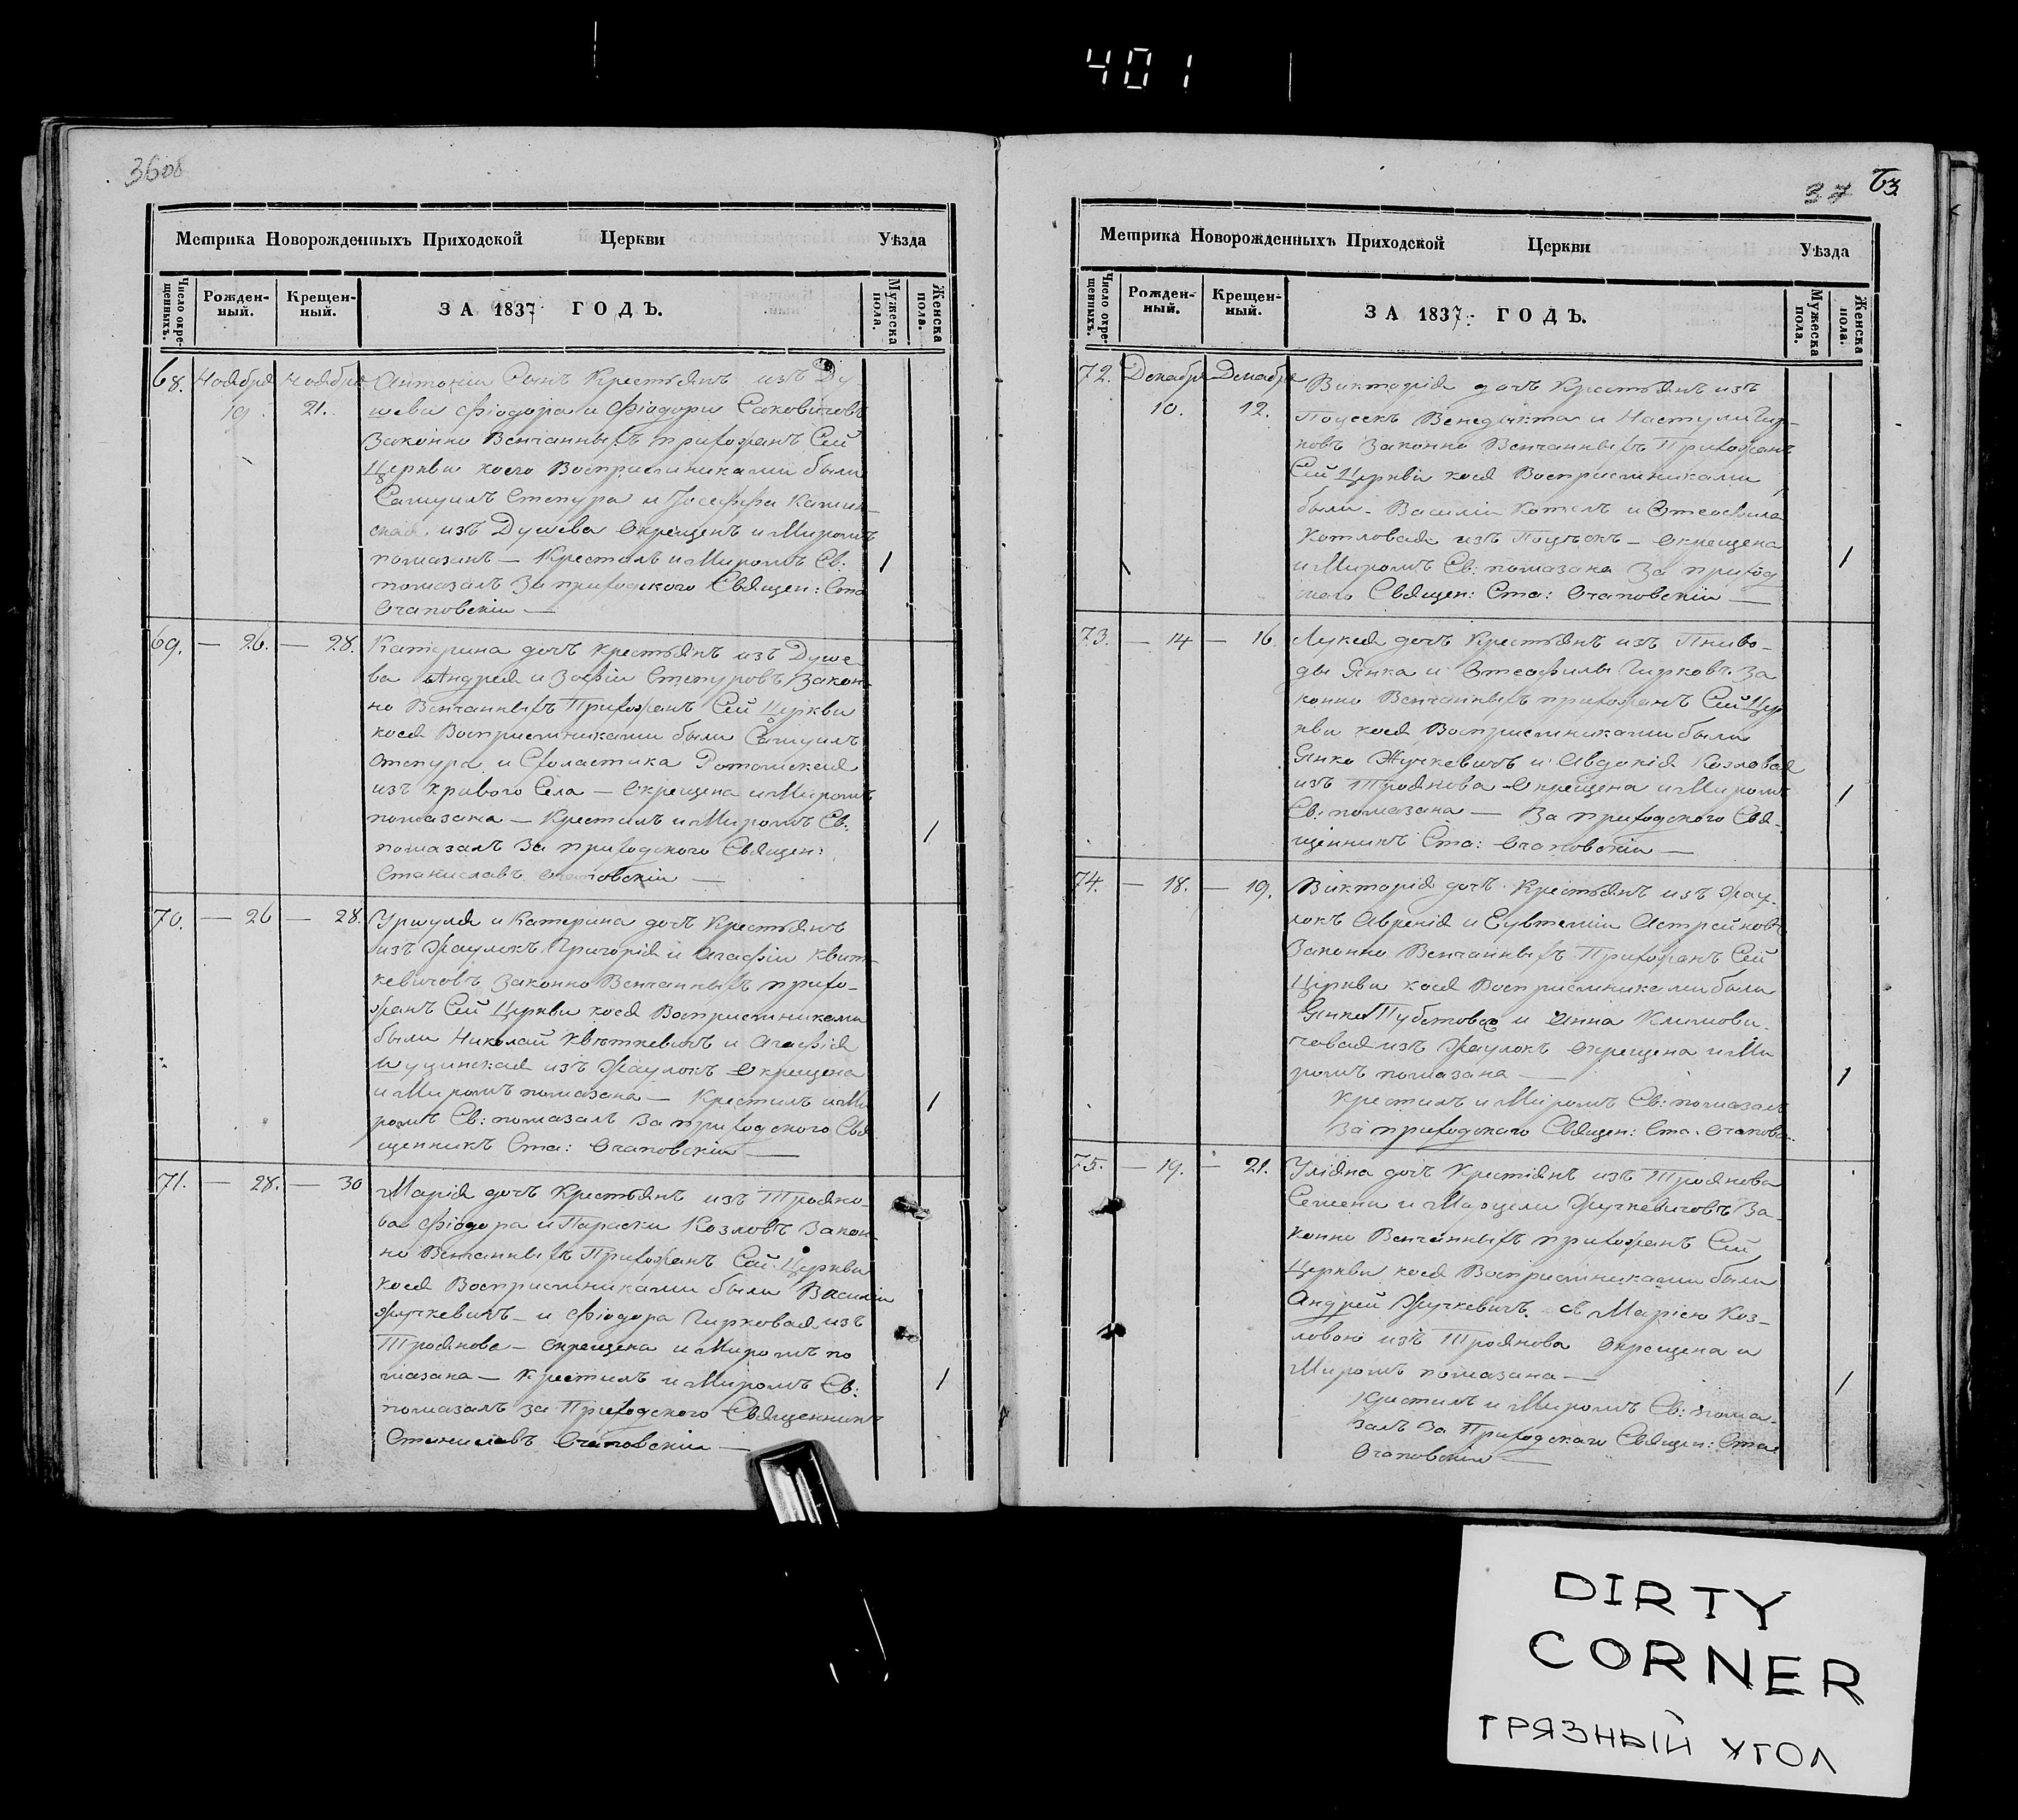 401
3600
Метрика Новорожденныхъ Приходской Церкви Уѣзда
Число окрещенныхъ. Рожденный. Крещенный. ЗА 1837 ГОДЪ. Мужеска пола. Женска пола.
68. Ноября 19. Ноября 21. Антоній Сынъ Крестьянъ изъ Ду
шева Фіодора и Фіодоры Саковичовъ
Законно Венчанныхъ прихожанъ Сей
Церкви коего Воспріемниками были
Самуилъ Степура и Іосефа Камин-
ская изъ Душева Окрещенъ и Миромъ
помазанъ — Крестилъ и Миромъ Св:
помазалъ За приходского Священ: Ста
Очаповскій —
1
69. — 26. — 28. Катерина дочъ крестьянъ изъ Душе
ва Андрея и Зофіи Степуровъ Закон
но Венчанныхъ Прихожанъ Сей Церкви
коея Воспріемниками были Самуилъ
Степура и Схоластика
изъ Кривого Села — Окрещена и Миромъ
помазана — Крестилъ и Миромъ Св:
помазалъ За приходского Священ:
Станиславъ Очаповскій —
1
70. — 26 — 28. Уршуля и Катерина дочъ Крестьянъ
изъ Жаулокъ Григорія и Агафіи Квит-
кевичовъ Законно Венчанныхъ прихо-
жанъ Сей Церкви коея Воспріемниками
были Николай Квѣткевичъ и Агафія
изъ Жаулокъ Окрещена
и Миромъ помазана — Крестилъ и Ми
ромъ Св: помазалъ За приходского Свя
щенникъ Ста: Очаповскій —
1
71. — 28. — 30 Марія дочъ Крестьянъ изъ Трояно-
ва Фіодора и Параски Козловъ Закон-
но Венчанныхъ Прихожанъ Сей Церкви
коея Воспріемниками были Василій
Жучкевичъ — и Фіодора Чирковая изъ
Троянова — Окрещена и Миромъ по
мазана — Крестилъ и Миромъ Св:
помазалъ за Приходского Священникъ
Станиславъ Очаповскій —
1
37 63
Метрика Новорожденныхъ Приходской Церкви Уѣзда
Число окрещенныхъ. Рожденный. Крещенный. ЗА 1837 ГОДЪ. Мужеска пола. Женска пола.
72. Декабря 10. Декабря 12. Викторія дочъ Крестьянъ изъ
Венедыкта и Настули Чир-
ковъ Законно Венчанныхъ Прихожанъ
Сей Церкви коея Воспріемниками
были — Василій Котелъ и Втеофила
Котловая изъ — Окрещена
и Миромъ Св: помазана За приход
ского Священ: Ста: Очаповскій —
1
73. — 14 — 16. Лукея дочъ Крестьянъ изъ Гниво-
ды Янка и Втеофилы Чирковъ За
конно Венчанныхъ прихожанъ Сей Цер
кви коея Воспріемниками были
Янко Жучкевичъ и Авдокія Козловая
изъ Троянова Окрещена и Миромъ
Св: помазана — За приходского Свя-
щенникъ Ста: Очаповскій —
1
74. — 18. — 19. Викторія дочъ Крестьянъ изъ Жау-
локъ Авренія и Еувтеміи Астрейковъ
Законно Венчанныхъ Прихожанъ Сей
Церкви коея Воспріемниками были
Янко и Анна Климови-
човая изъ Жаулокъ Окрещена и Ми
ромъ помазана —
Крестилъ и Миромъ Св: помазалъ
За приходского Священ: Ста. Очапов-
1
75. — 19. — 21. Уліяна дочъ Крестіянъ изъ Троянова
Семена и Марцели Жучкевичовъ За-
конно Венчанныхъ прихожанъ Сей
Церкви коея Воспріемниками были
Андрей Жучкевичъ съ Маріею Коз-
ловою изъ Троянова Окрещена и
Миромъ помазана —
Крестилъ и Миромъ Св: пома-
залъ За Приходскаго Священ: Ста:
Очаповскій —
1
DIRTY
CORNER
ГРЯЗНЫЙ УГОЛ